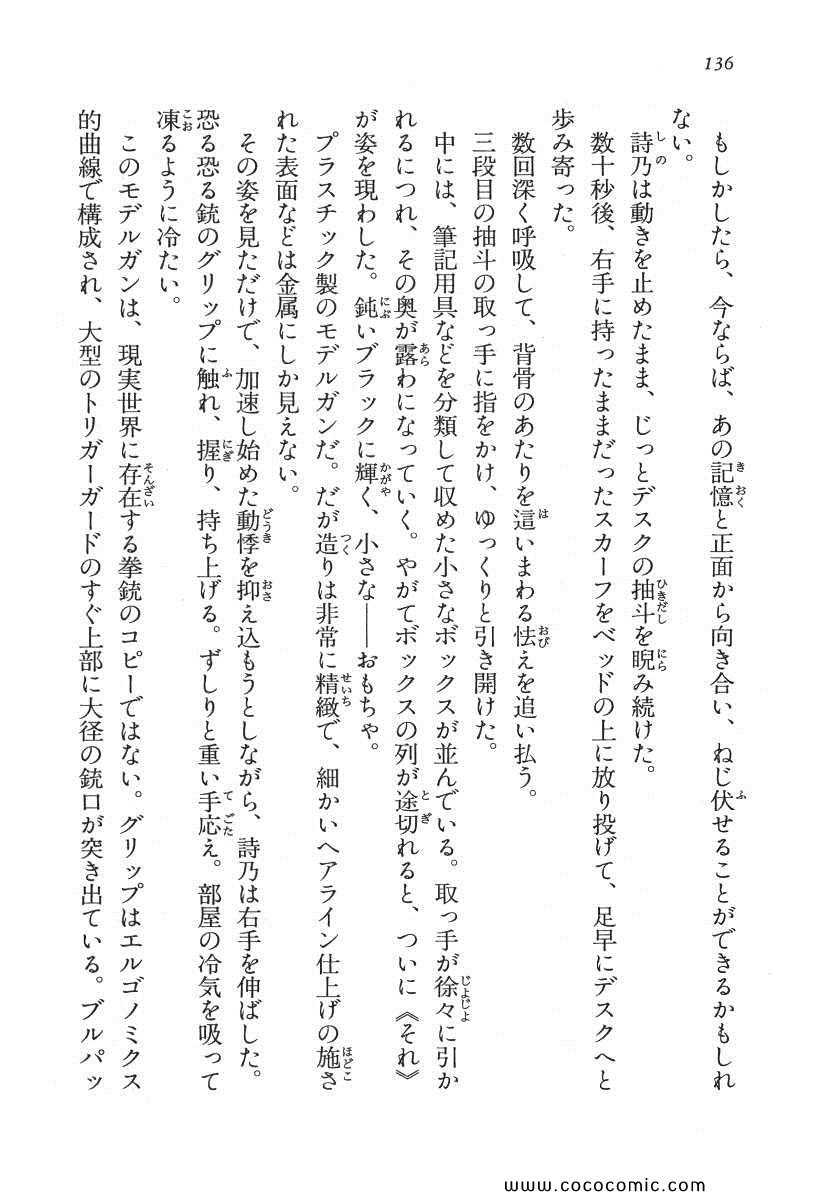 136
もしかしたら、今ならば、あの記憶と正面から向き合い、ねじ伏せることができるかもしれ
ない。
詩乃は動きを止めたまま、じっとデスクの抽斗を睨み続けた。
数十秒後、右手に持ったままだったスカーフをベッドの上に放り投げて、足早にデスクへと
歩み寄った。
数回深く呼吸して、背骨のあたりを這いまわる怯えを追い払う。
三段目の抽斗の取っ手に指をかけ、ゆっくりと引き開けた。
中には、筆記用具などを分類して収めた小さなボックスが並んでいる。取っ手が徐々に引か
れるにつれ、その奥が露わになっていく。やがてボックスの列が途切れると、ついに《それ》
が姿を現わした。鈍いブラックに輝く、小さな――おもちゃ。
プラスチック製のモデルガンだ。だが造りは非常に精緻で、細かいヘアライン仕上げの施さ
れた表面などは金属にしか見えない。
その姿を見ただけで、加速し始めた動悸を抑え込もうとしながら、詩乃は右手を伸ばした。
恐る恐る銃のグリップに触れ、握り、持ち上げる。ずしりと重い手応え。部屋の冷気を吸って
凍るように冷たい。
このモデルガンは、現実世界に存在する拳銃のコピーではない。グリップはエルゴノミクス
的曲線で構成され、大型のトリガーガードのすぐ上部に大径の銃口が突き出ている。ブルパッ
www.cococomic.com